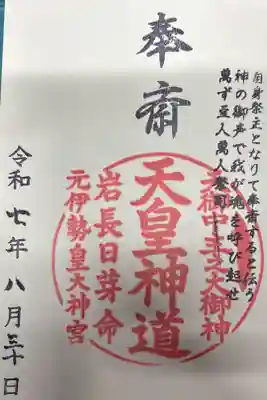 自身祭主となりて奉斎すると伝う
神の御声で我が魂を呼び起せ
萬ず亜人萬人祭司
奉斎
天之御中主之大御神
天皇神道
岩長日芽命
元伊勢皇大神宮
令和七年八月三十日